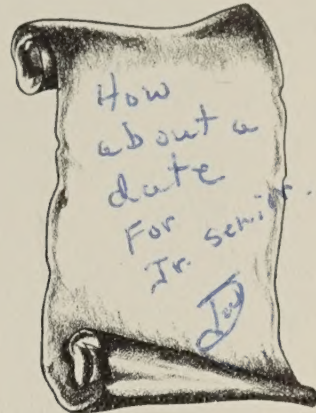 How
about a
date
For
Jr. senior.